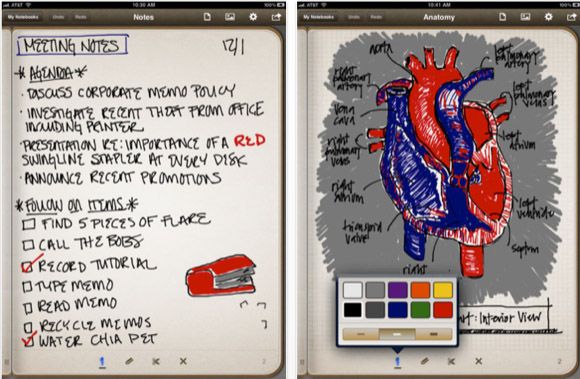 10:30 AM
My Notebooks
Undo
Redo
Notes
MEETING NOTES
12/1
* AGENDA *
· DISCUSS CORPORATE MEMO POLICY
· INVESTIGATE RECENT THEFT FROM OFFICE
INCLUDING PRINTER
· PRESENTATION RE: IMPORTANCE OF A RED
SWINGLINE STAPLER AT EVERY DISK
· ANNOUNCE RECENT PROMOTIONS
* FOLLOW ON ITEMS *
FIND 5 PIECES OF FLARE
CALL THE BOBS
RECORD TUTORIAL
TYPE MEMO
READ MEMO
RECYCLE MEMOS
WATER CHIA PET
2
10:41 AM
My Notebooks
Undo
Redo
Anatomy
aorta
left
pulmonary
artery
right
pulmonary
artery
left
pulmonary
veins
vena
cava
left
atrium
right
pulmonary
veins
right
atrium
left
ventricle
tricuspid
valve
septum
right
art: Interior View
2